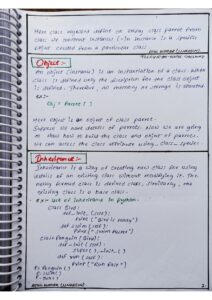 Here class objects define an empty class parent from
class we construct instance. (-) An instance is a specific
object created from a particular class.
Object :-
An object (instance) is an instantiation of a class. When
class is defined only the description for the object class
is defined. Therefore, no memory or storage is allocated.
ex:-
Obj = Parrot ( )
Here object is an object of class parrot.
Suppose we have details of parrot. Now we are going
to show how to build the class and object of parrot.
We can access the class attribute using __class__
Inheritance :-
Inheritance is a way of creating new class for using
details of an existing class without modifying it. The
newly formed class is derived class, similarly, the
existing class is a base class.
ex:- use of Inheritance in python.
class Bird:
def __init__ (self):
print ("Bird is ready")
def swim (self):
print ("Swim faster")
class Penguin (Bird):
def __init__ (self):
super().__init__()
def run (self):
print ("Run fast")
P = Penguin ( )
P. swim ( )
P. run ( )
2